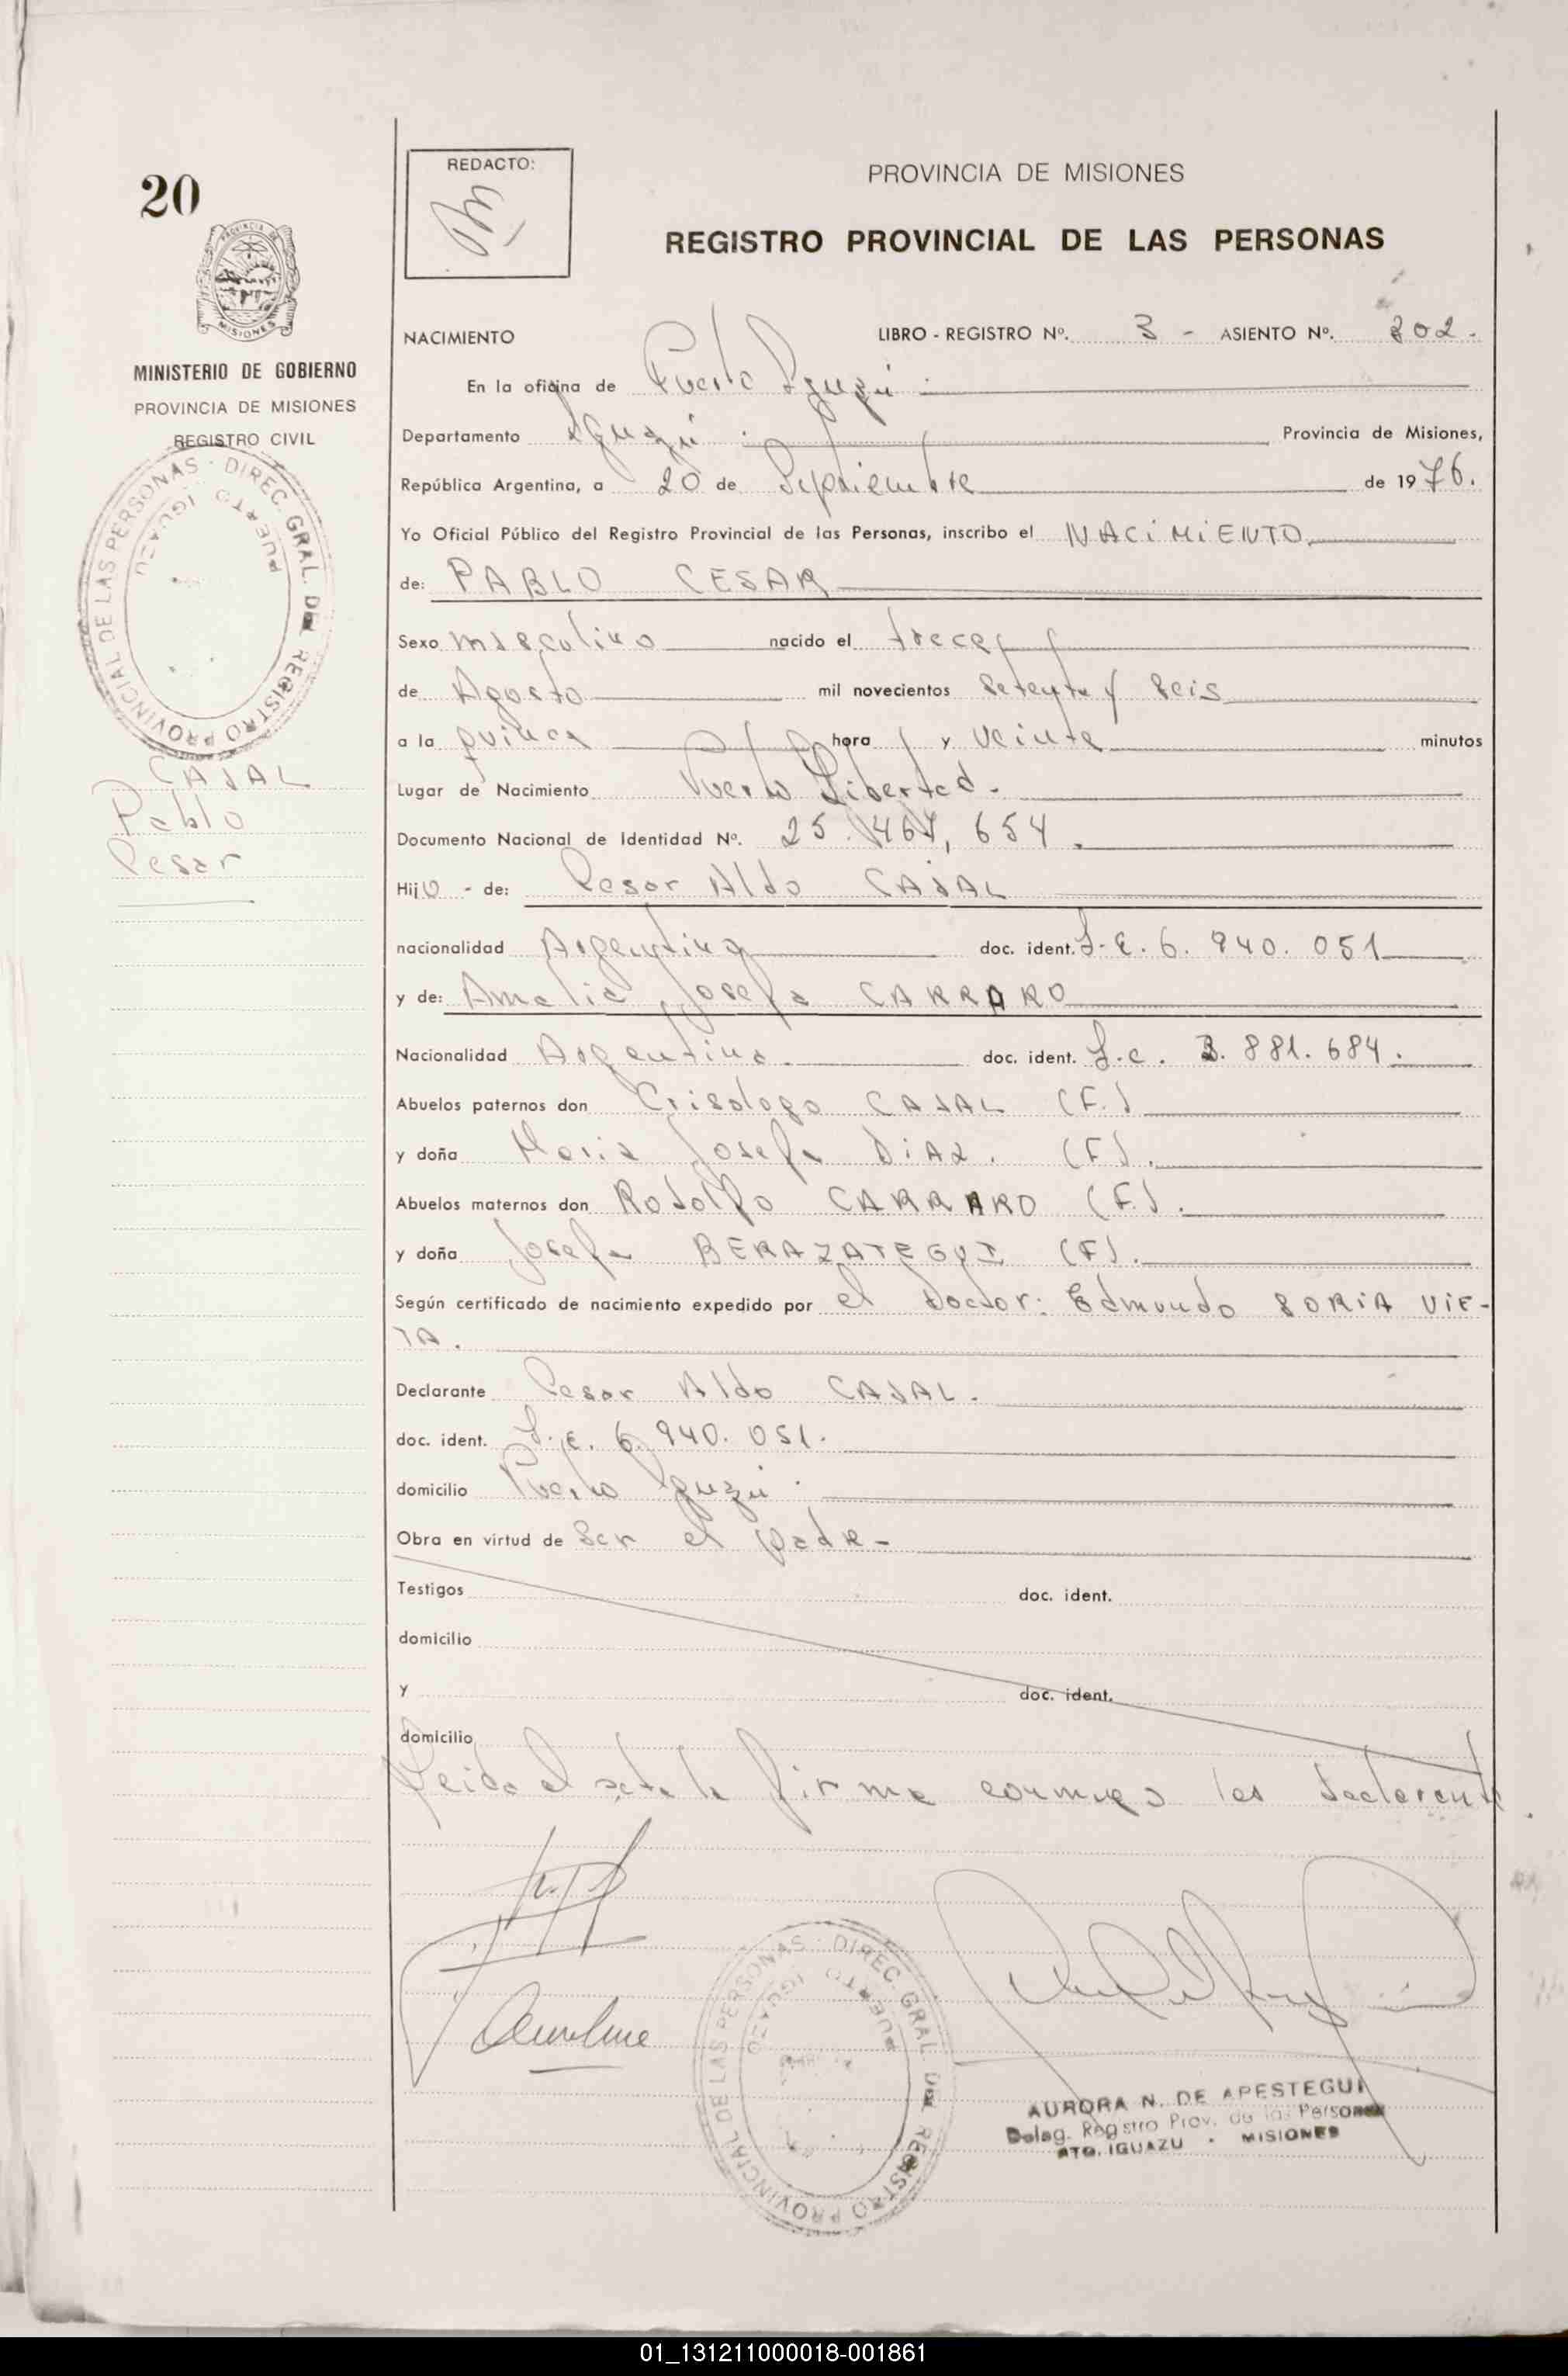 20
MINISTERIO DE GOBIERNO
PROVINCIA DE MISIONES
REGISTRO CIVIL
DIREC. GRAL. DEL REGISTRO PROVINCIAL DE LAS PERSONAS
PUERTO IGUAZU
CAJAL
Pablo
Cesar
REDACTO:
PROVINCIA DE MISIONES
REGISTRO PROVINCIAL DE LAS PERSONAS
NACIMIENTO LIBRO - REGISTRO Nº. 3 - ASIENTO Nº. 202.
En la oficina de Puerto Iguazú
Departamento Iguazú Provincia de Misiones,
República Argentina, a 20 de Septiembre de 1976.
Yo Oficial Público del Registro Provincial de las Personas, inscribo el NACIMIENTO
de: PABLO CESAR
Sexo masculino nacido el trece
de Agosto mil novecientos setenta y seis
a la quince hora y veinte minutos
Lugar de Nacimiento Puerto Libertad.
Documento Nacional de Identidad Nº. 25.467,654.
Hijo - de: Cesar Aldo CAJAL
nacionalidad Argentina doc. ident. L.E. 6.940.051
y de: Amalia Josefa CARRARO
Nacionalidad Argentina. doc. ident. L.c. 3.881.684.
Abuelos paternos don Crisologo CAJAL (F.)
y doña Maria Josefa DIAZ. (F).
Abuelos maternos don Rodolfo CARRARO (F.).
y doña Josefa BERAZATEGUI (F).
Según certificado de nacimiento expedido por el Doctor: Edmundo SORIA VIE-
TA.
Declarante Cesar Aldo CAJAL.
doc. ident. L.E. 6.940.051.
domicilio Puerto Iguazú.
Obra en virtud de ser el padre-
Testigos doc. ident.
domicilio
y doc. ident.
domicilio
Leida el acta la firma conmigo los declarante.
DIREC. GRAL. DEL REGISTRO PROVINCIAL DE LAS PERSONAS
PUERTO IGUAZU
AURORA N. DE APESTEGUI
Deleg. Registro Prov. de las Personas
PTO. IGUAZU - MISIONES
01_131211000018-001861